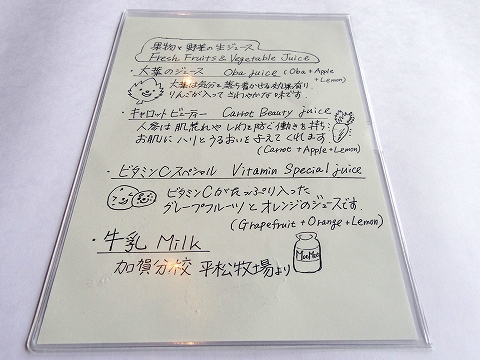 果物と野菜の生ジュース
Fresh Fruits & Vegetable Juice
・大葉のジュース Oba juice (Oba + Apple
+ Lemon)
大葉は気分を落ち着かせる効果有り
りんごが入ってさわやかな味です。
・キャロットビューティー Carrot Beauty juice
人参は肌荒れやしわを防ぐ働きを持ち
お肌にハリとうるおいを与えてくれます
(Carrot + Apple + Lemon)
・ビタミンCスペシャル Vitamin Special juice
ビタミンCがたっぷり入った
グレープフルーツとオレンジのジュースです。
(Grapefruit + Orange + Lemon)
・牛乳 Milk
加賀分校 平松牧場より
Moo Moo